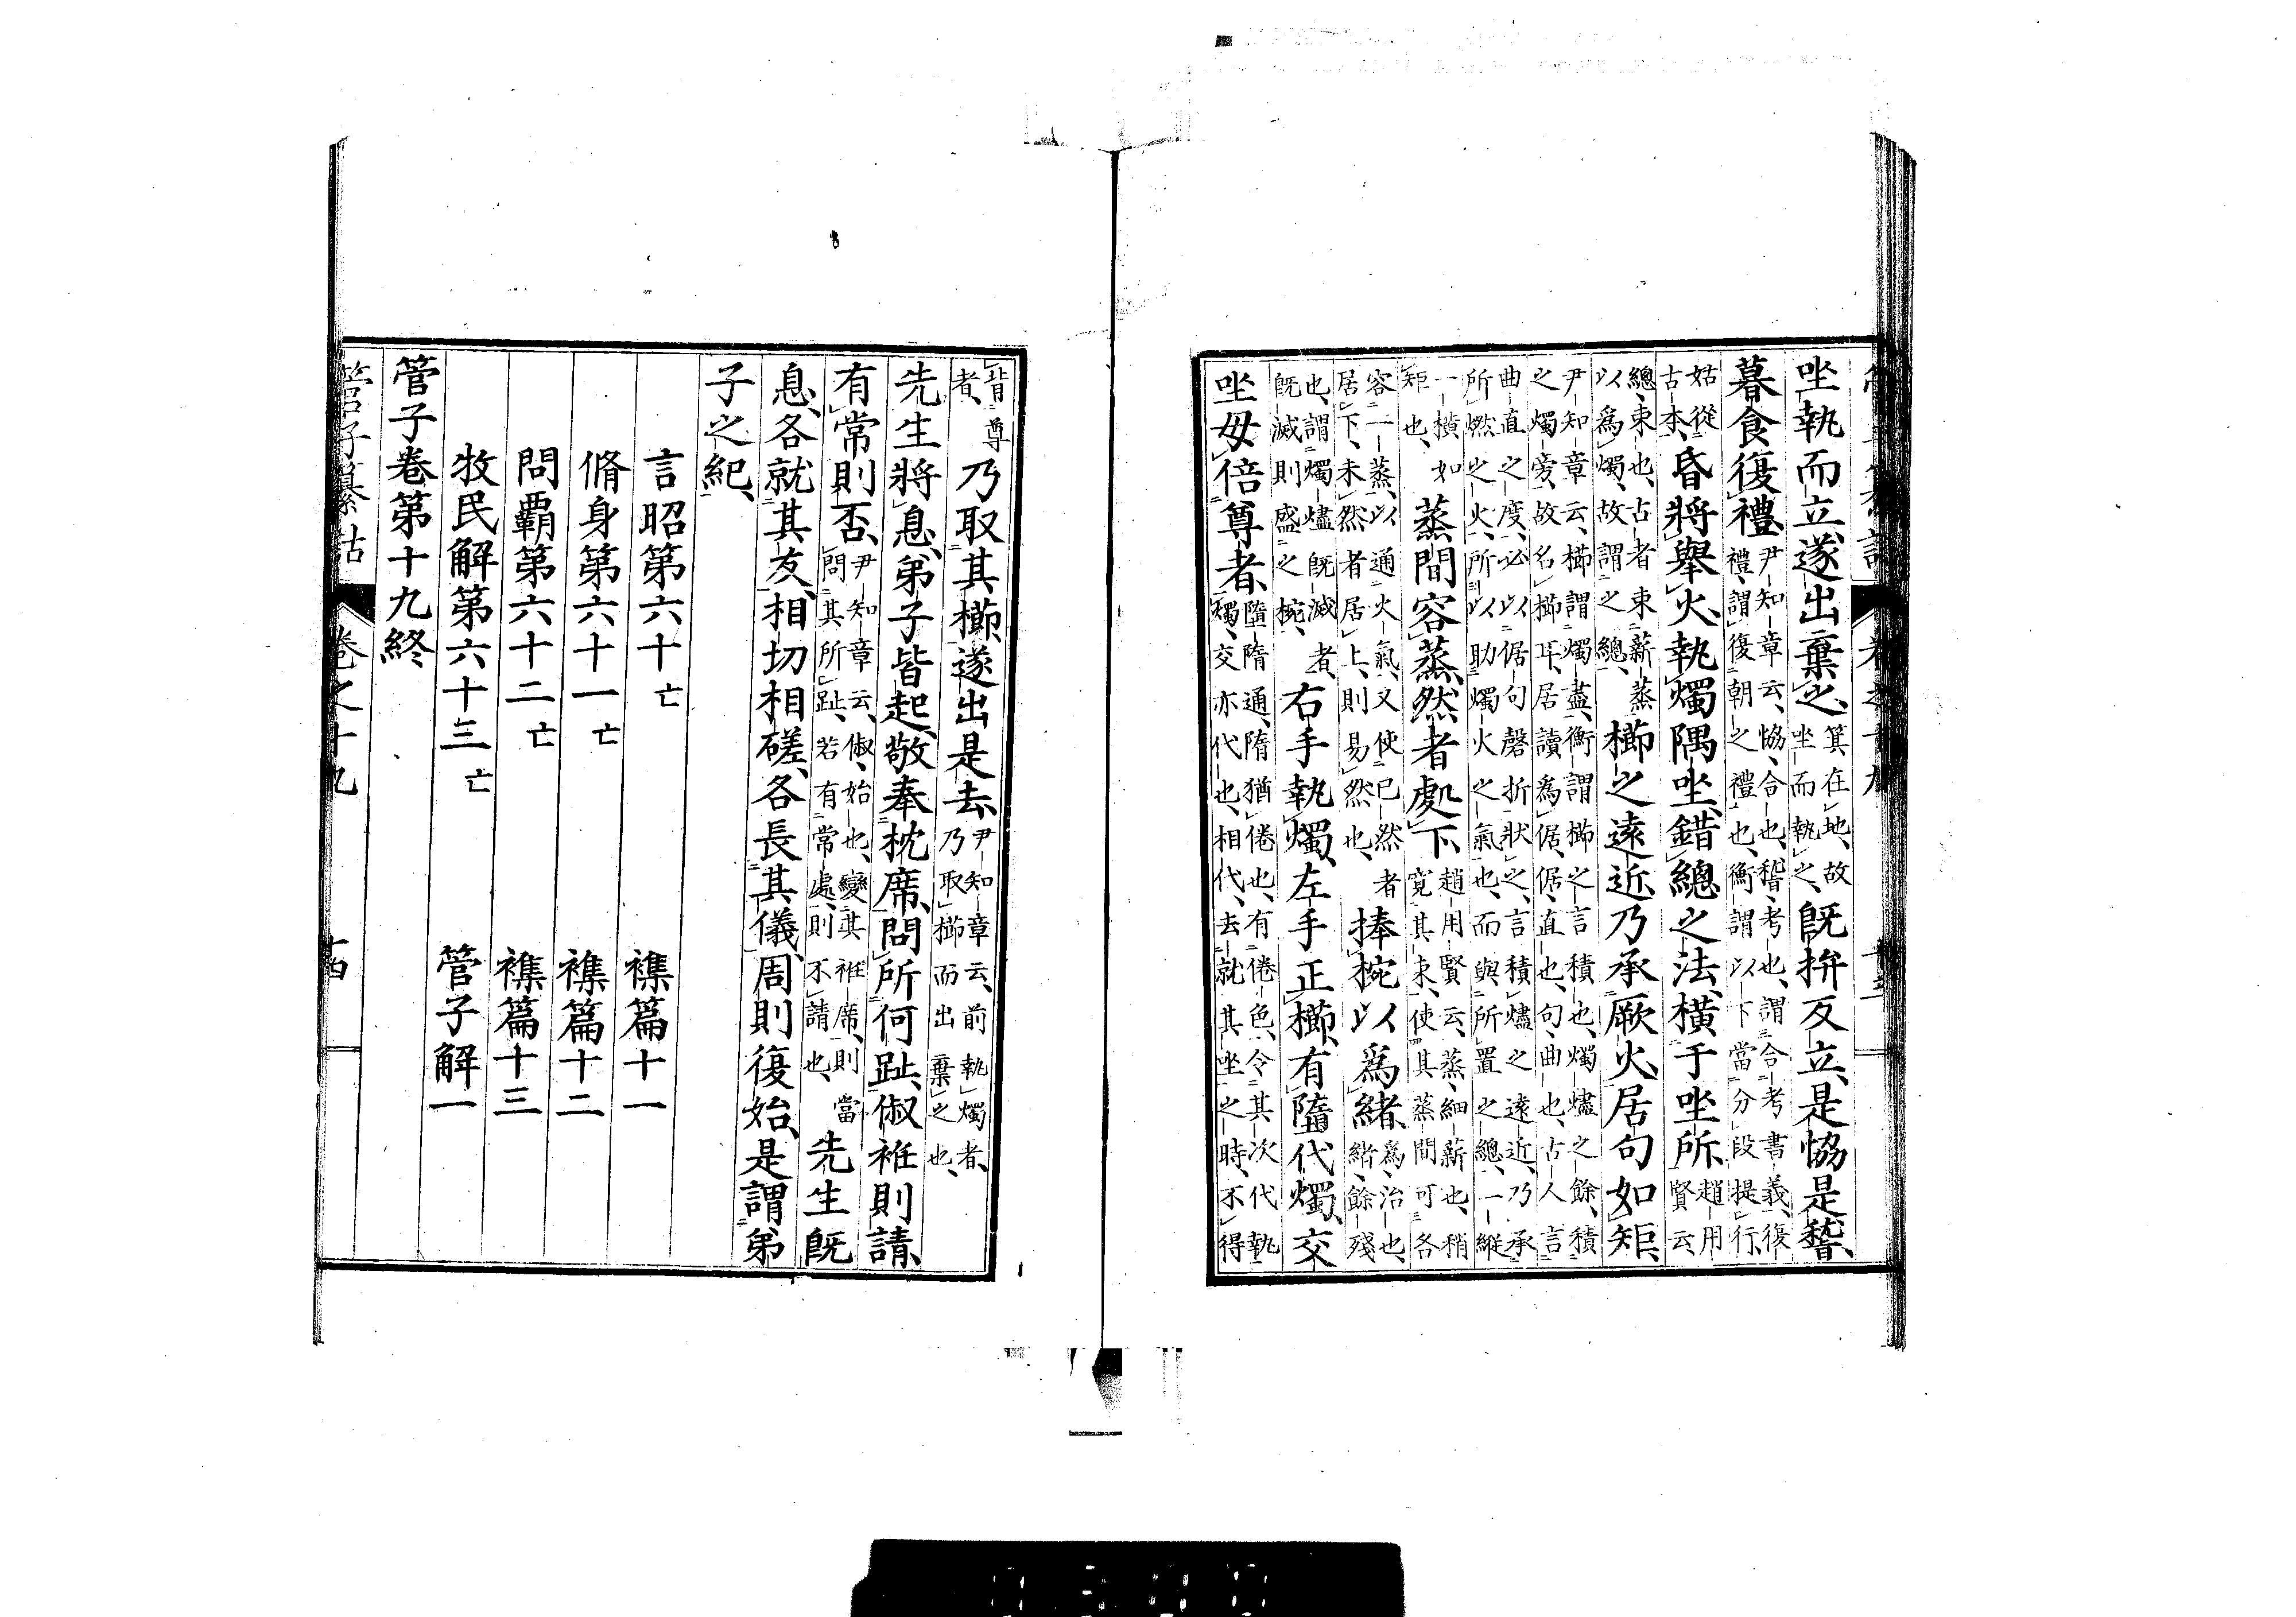 坐執而立、遂出棄之、箕在地、故坐而執之、既拚反立、是協是稽、
暮食復禮、尹知章云、協、合也、稽、考也、謂合考書義、復禮、謂復朝之禮也、衡謂以下當分段提行、
姑從古本、昏將舉火、執燭隅坐、錯總之法、橫于坐所、趙用賢云、
總、束也、古者束薪蒸以爲燭、故謂之總、櫛之遠近、乃承厥火、居句如矩、
尹知章云、櫛謂燭盡、衡謂櫛之言積也、燭燼之餘、積之燭旁、故名櫛耳、居讀爲倨、倨、直也、句、曲也、古人言
曲直之度、必以倨句磬折狀之、言積燼之遠近、乃承所燃之火、所以助燭火之氣也、而與所置之總、一縱
一橫如矩也、蒸間容蒸、然者處下、趙用賢云、蒸、細薪也、稍寬其束、使其蒸間可各
容一蒸、以通火氣、又使已然者居下、未然者居上、則易然也、捧椀以爲緒、爲、治也、緒、餘殘
也、謂燭燼既滅者、既滅則盛之椀、右手執燭、左手正櫛、有墮代燭、交
坐毋倍尊者、墮隋通、隋猶倦也、有倦色、令其次代執燭、交亦代也、相代、去就其坐之時、不得
背尊者、乃取其櫛、遂出是去、尹知章云、前執燭者、乃取櫛而出棄之也、
先生將息、弟子皆起、敬奉枕席、問所何趾、俶衽則請、
有常則否、尹知章云、俶、始也、變其衽席、則當問其所趾、若有常處、則不請也、先生既
息、各就其友、相切相磋、各長其儀、周則復始、是謂弟
子之紀、
言昭第六十亡　襍篇十一
脩身第六十一亡　襍篇十二
問霸第六十二亡　襍篇十三
牧民解第六十三亡　管子解一
管子卷第十九終
管子纂詁　卷之十九　十四